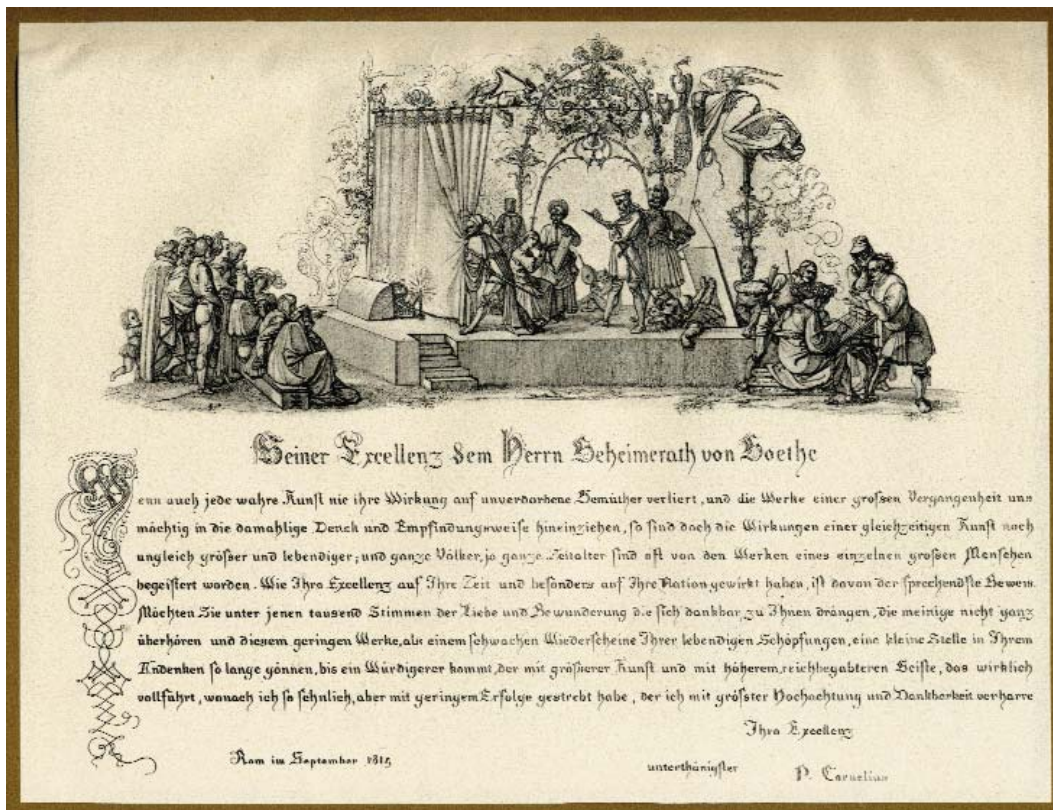 Seiner Excellenz dem Herrn Geheimerath von Goethe
Wenn auch jede wahre Kunst nie ihre Wirkung auf unverdorbene Gemüther verliert, und die Werke einer grossen Vergangenheit uns
mächtig in die damahlige Denck und Empfindungsweise hineinziehen, so sind doch die Wirkungen einer gleichzeitigen Kunst noch
ungleich grösser und lebendiger; und ganze Völker, ja ganze Zeitalter sind oft von den Werken eines einzelnen grossen Menschen
begeistert worden. Wie Ihro Excellenz auf Ihre Zeit und besonders auf Ihre Nation gewirkt haben, ist davon der sprechendste Beweis.
Möchten Sie unter jenen tausend Stimmen der Liebe und Bewunderung die sich dankbar zu Ihnen drängen, die meinige nicht ganz
überhören und diesem geringen Werke, als einem schwachen Wiederscheine Ihrer lebendigen Schöpfungen, eine kleine Stelle in Ihrem
Andenken so lange gönnen, bis ein Würdigerer kommt, der mit grösserer Kunst und mit höherem, reichbegabteren Geiste, das wirklich
vollführt, wonach ich so sehnlich, aber mit geringem Erfolge gestrebt habe, der ich mit grösster Hochachtung und Dankbarkeit verharre
Ihro Excellenz
Rom im September 1815
unterthänigster
P. Cornelius